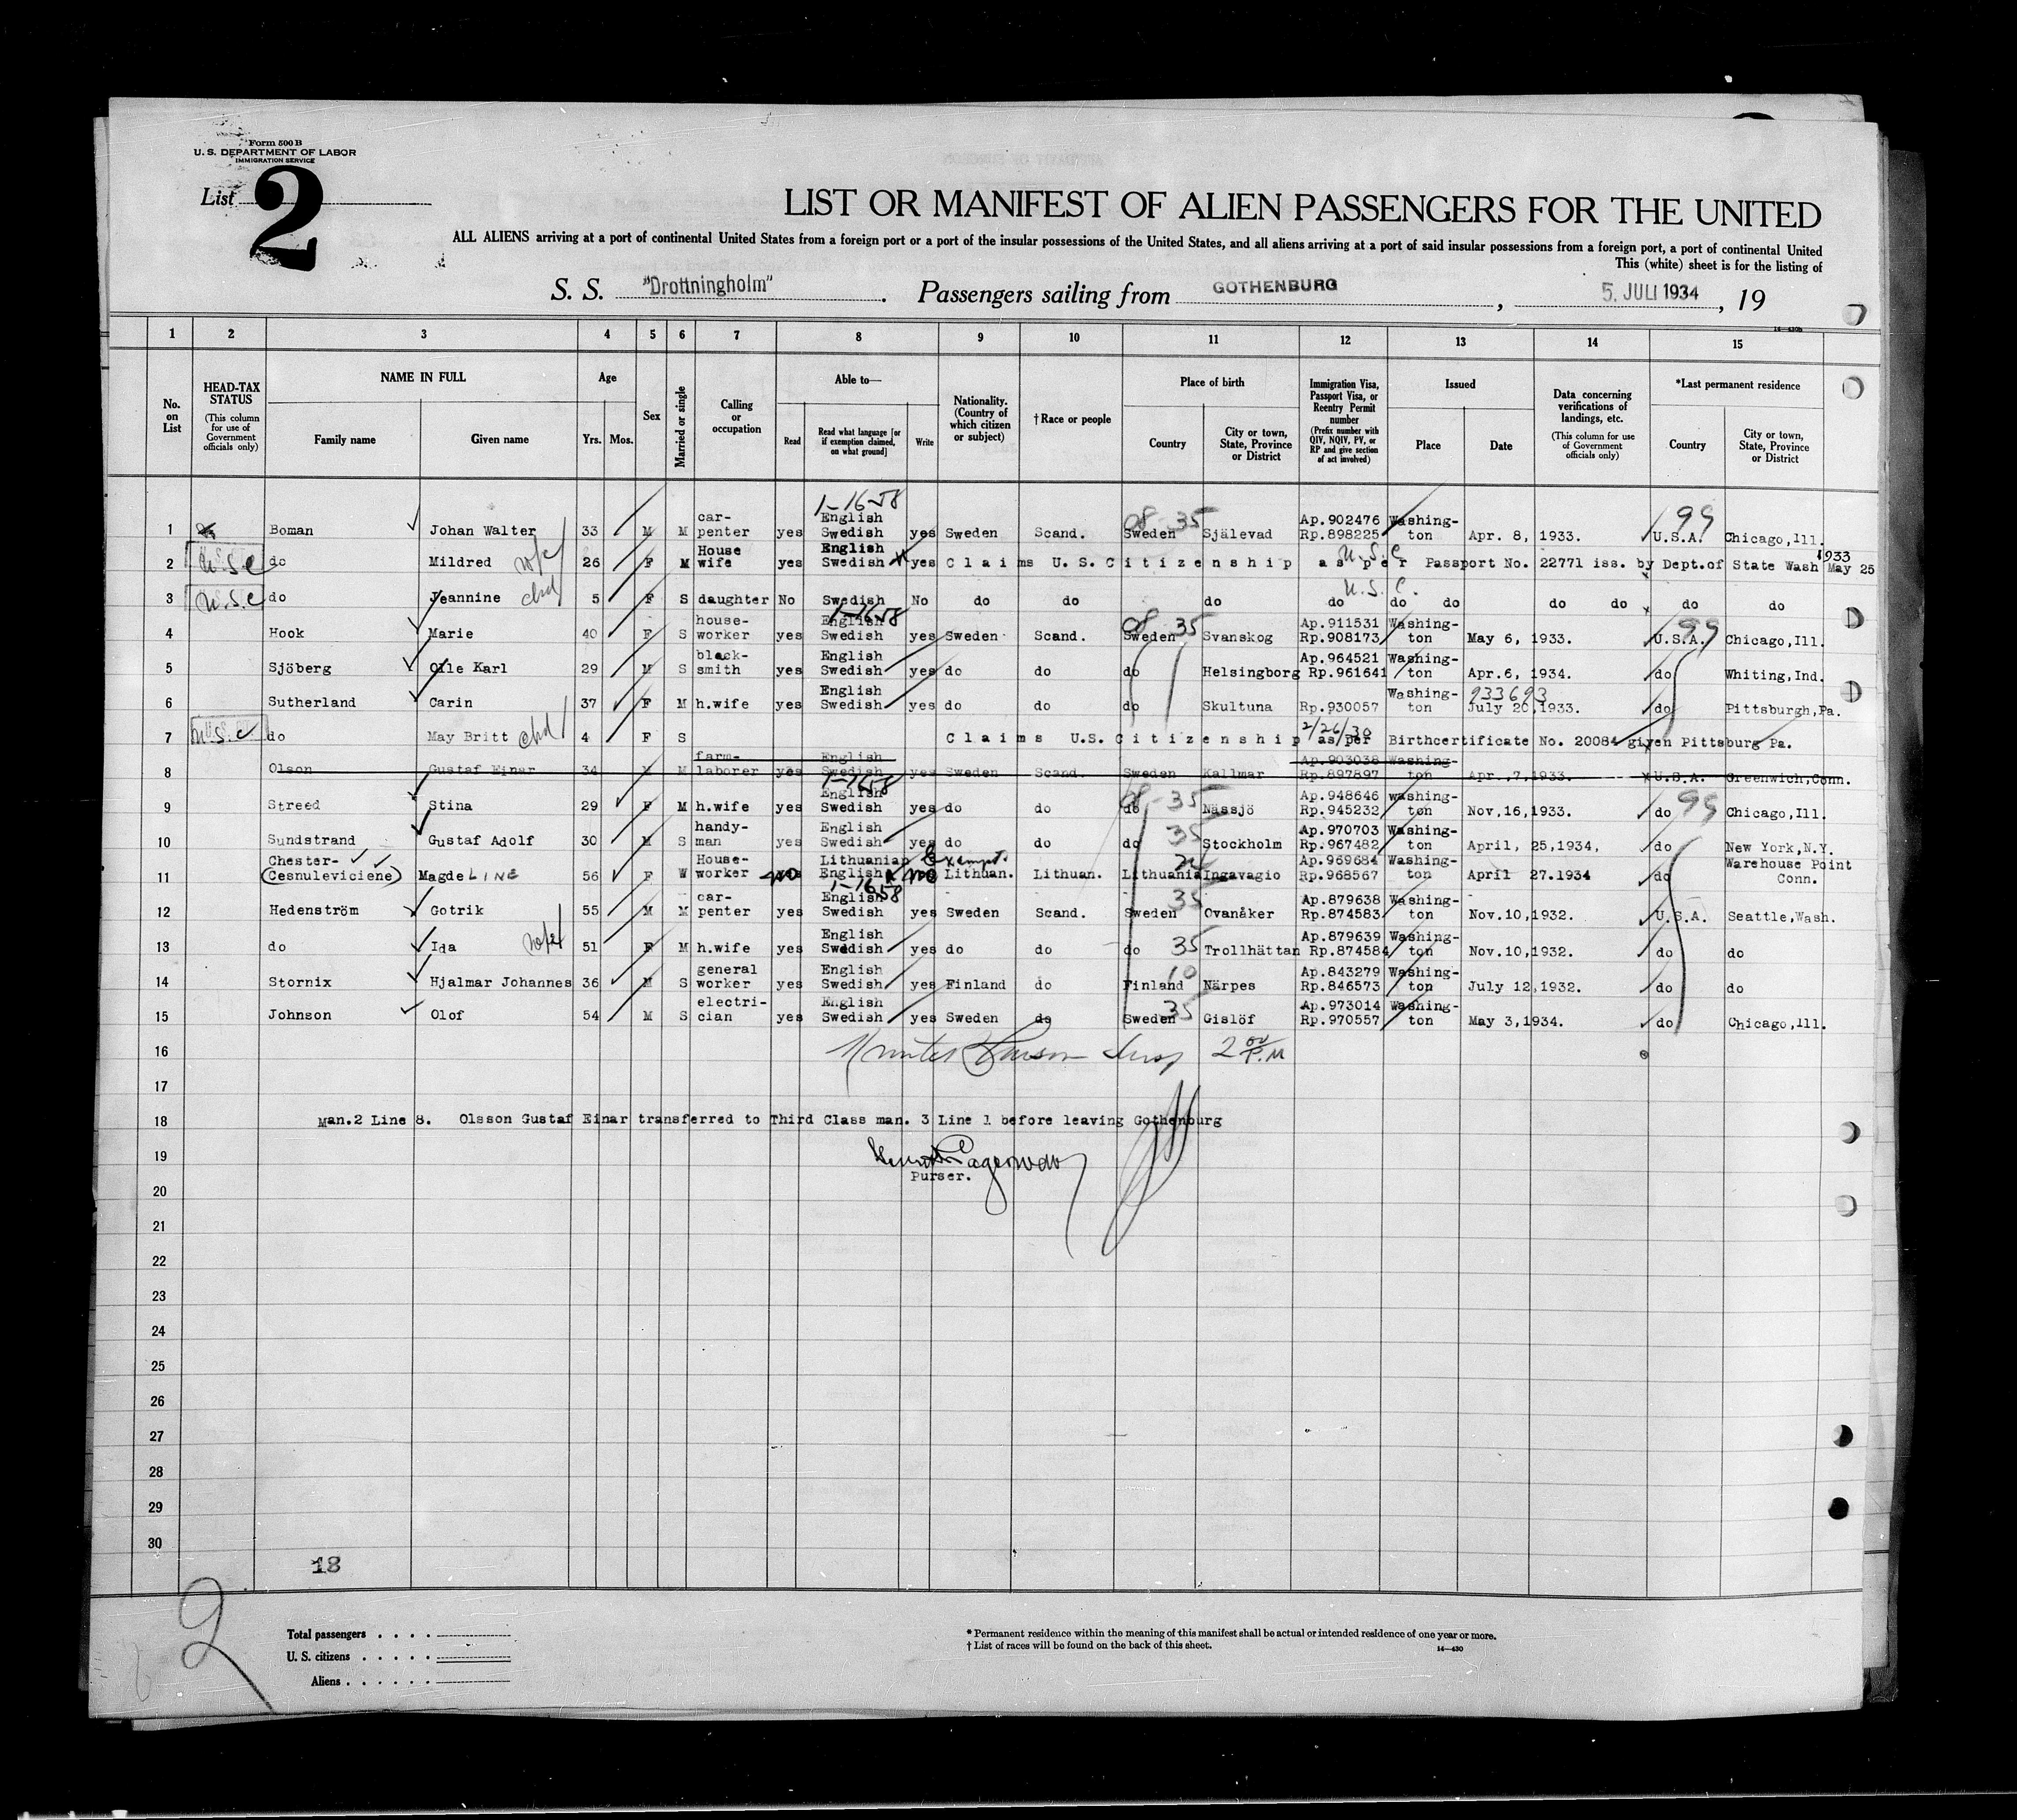 Form 500 B
U. S. DEPARTMENT OF LABOR
IMMIGRATION SERVICE
List 2
LIST OR MANIFEST OF ALIEN PASSENGERS FOR THE UNITED
ALL ALIENS arriving at a port of continental United States from a foreign port or a port of the insular possessions of the United States, and all aliens arriving at a port of said insular possessions from a foreign port, a port of continental United
This (white) sheet is for the listing of
S. S. "Drottningholm". Passengers sailing from GOTHENBURG, 5. JULI 1934, 19
14—430b
1 2 3 4 5 6 7 8 9 10 11 12 13 14 15
No. on List
HEAD-TAX STATUS (This column for use of Government officials only)
NAME IN FULL Family name Given name
Age Yrs. Mos.
Sex
Married or single
Calling or occupation
Able to— Read Read what language [or if exemption claimed, on what ground] Write
Nationality. (Country of which citizen or subject)
†Race or people
Place of birth Country City or town, State, Province or District
Immigration Visa, Passport Visa, or Reentry Permit number (Prefix number with QIV, NQIV, PV, or RP and give section of act involved)
Issued Place Date
Data concerning verifications of landings, etc. (This column for use of Government officials only)
*Last permanent residence Country City or town, State, Province or District
1-16-58
1 Boman Johan Walter 33 M M car-penter yes English Swedish yes Sweden Scand. 08-35 Sweden Själevad Ap.902476 Rp.898225 Washing-ton Apr. 8, 1933. 99 U.S.A. Chicago,Ill.
2 U.S.C do Mildred wfe 26 F M House wife yes English Swedish yes Claims U.S.Citizenship as per Passport No. 22771 iss. by Dept.of State Wash May 25 1933
U.S.C
3 U.S.C do Jeannine chd 5 F S daughter No Swedish No do do do do do do do do do do
U.S.C.
1-16-58
4 Hook Marie 40 F S house-worker yes English Swedish yes Sweden Scand. 08-35 Sweden Svanskog Ap.911531 Rp.908173 Washing-ton May 6, 1933. 99 U.S.A. Chicago,Ill.
5 Sjöberg Olle Karl 29 M S black-smith yes English Swedish yes do do do Helsingborg Ap.964521 Rp.961641 Washing-ton Apr.6, 1934. do Whiting,Ind.
6 Sutherland Carin 37 F M h.wife yes English Swedish yes do do do Skultuna Rp.930057 Washing-ton 933693 July 20,1933. do Pittsburgh,Pa.
7 U.S.C do May Britt chd 4 F S Claims U.S.Citizenship as per 2/26/30 Birthcertificate No. 20084 given Pittsburg Pa.
8 Olson Gustaf Einar 34 M M farm-laborer yes English Swedish yes Sweden Scand. Sweden Kallmar Ap.903038 Rp.897897 Washing-ton Apr.,7,1933. U.S.A. Greenwich,Conn.
1-16-58
9 Streed Stina 29 F M h.wife yes English Swedish yes do do do 08-35 Nässjö Ap.948646 Rp.945232 washing-ton Nov,16,1933. do 99 Chicago,Ill.
10 Sundstrand Gustaf Adolf 30 M S handy-man yes English Swedish yes do do do 35 Stockholm Ap.970703 Rp.967482 Washing-ton April, 25,1934, do New York,N.Y.
11 Chester- (Cesnuleviciene) MagdeLINE 56 F W House-worker no Lithuanian English Exempt no Lithuan. Lithuan. Lithuania Ingavagio Ap.969684 Rp.968567 Washing-ton April 27.1934 do Warehouse Point Conn.
1-16-58
12 Hedenström Gotrik 55 M M car-penter yes English Swedish yes Sweden Scand. Sweden 35 Ovanåker Ap.879638 Rp.874583 Washing-ton Nov.10,1932. U.S.A. Seattle,Wash.
13 do Ida wfe 51 F M h.wife yes English Swedish yes do do do 35 Trollhättan Ap.879639 Rp.874584 Washing-ton Nov.10,1932. do do
14 Stornix Hjalmar Johannes 36 M S general worker yes English Swedish yes Finland do Finland 10 Närpes Ap.843279 Rp.846573 Washing-ton July 12,1932. do do
15 Johnson Olof 54 M S electri-cian yes English Swedish yes Sweden do Sweden 35 Gislöf Ap.973014 Rp.970557 Washing-ton May 3,1934. do Chicago,Ill.
16 Insp 2 00 P.M
17
18 Man.2 Line 8. Olsson Gustaf Einar transferred to Third Class man. 3 Line 1 before leaving Gothenburg
19
Purser.
20
21
22
23
24
25
26
27
28
29
30
18
2
Total passengers . . . .
U. S. citizens . . . . .
Aliens . . . . . .
* Permanent residence within the meaning of this manifest shall be actual or intended residence of one year or more.
† List of races will be found on the back of this sheet.
14—430